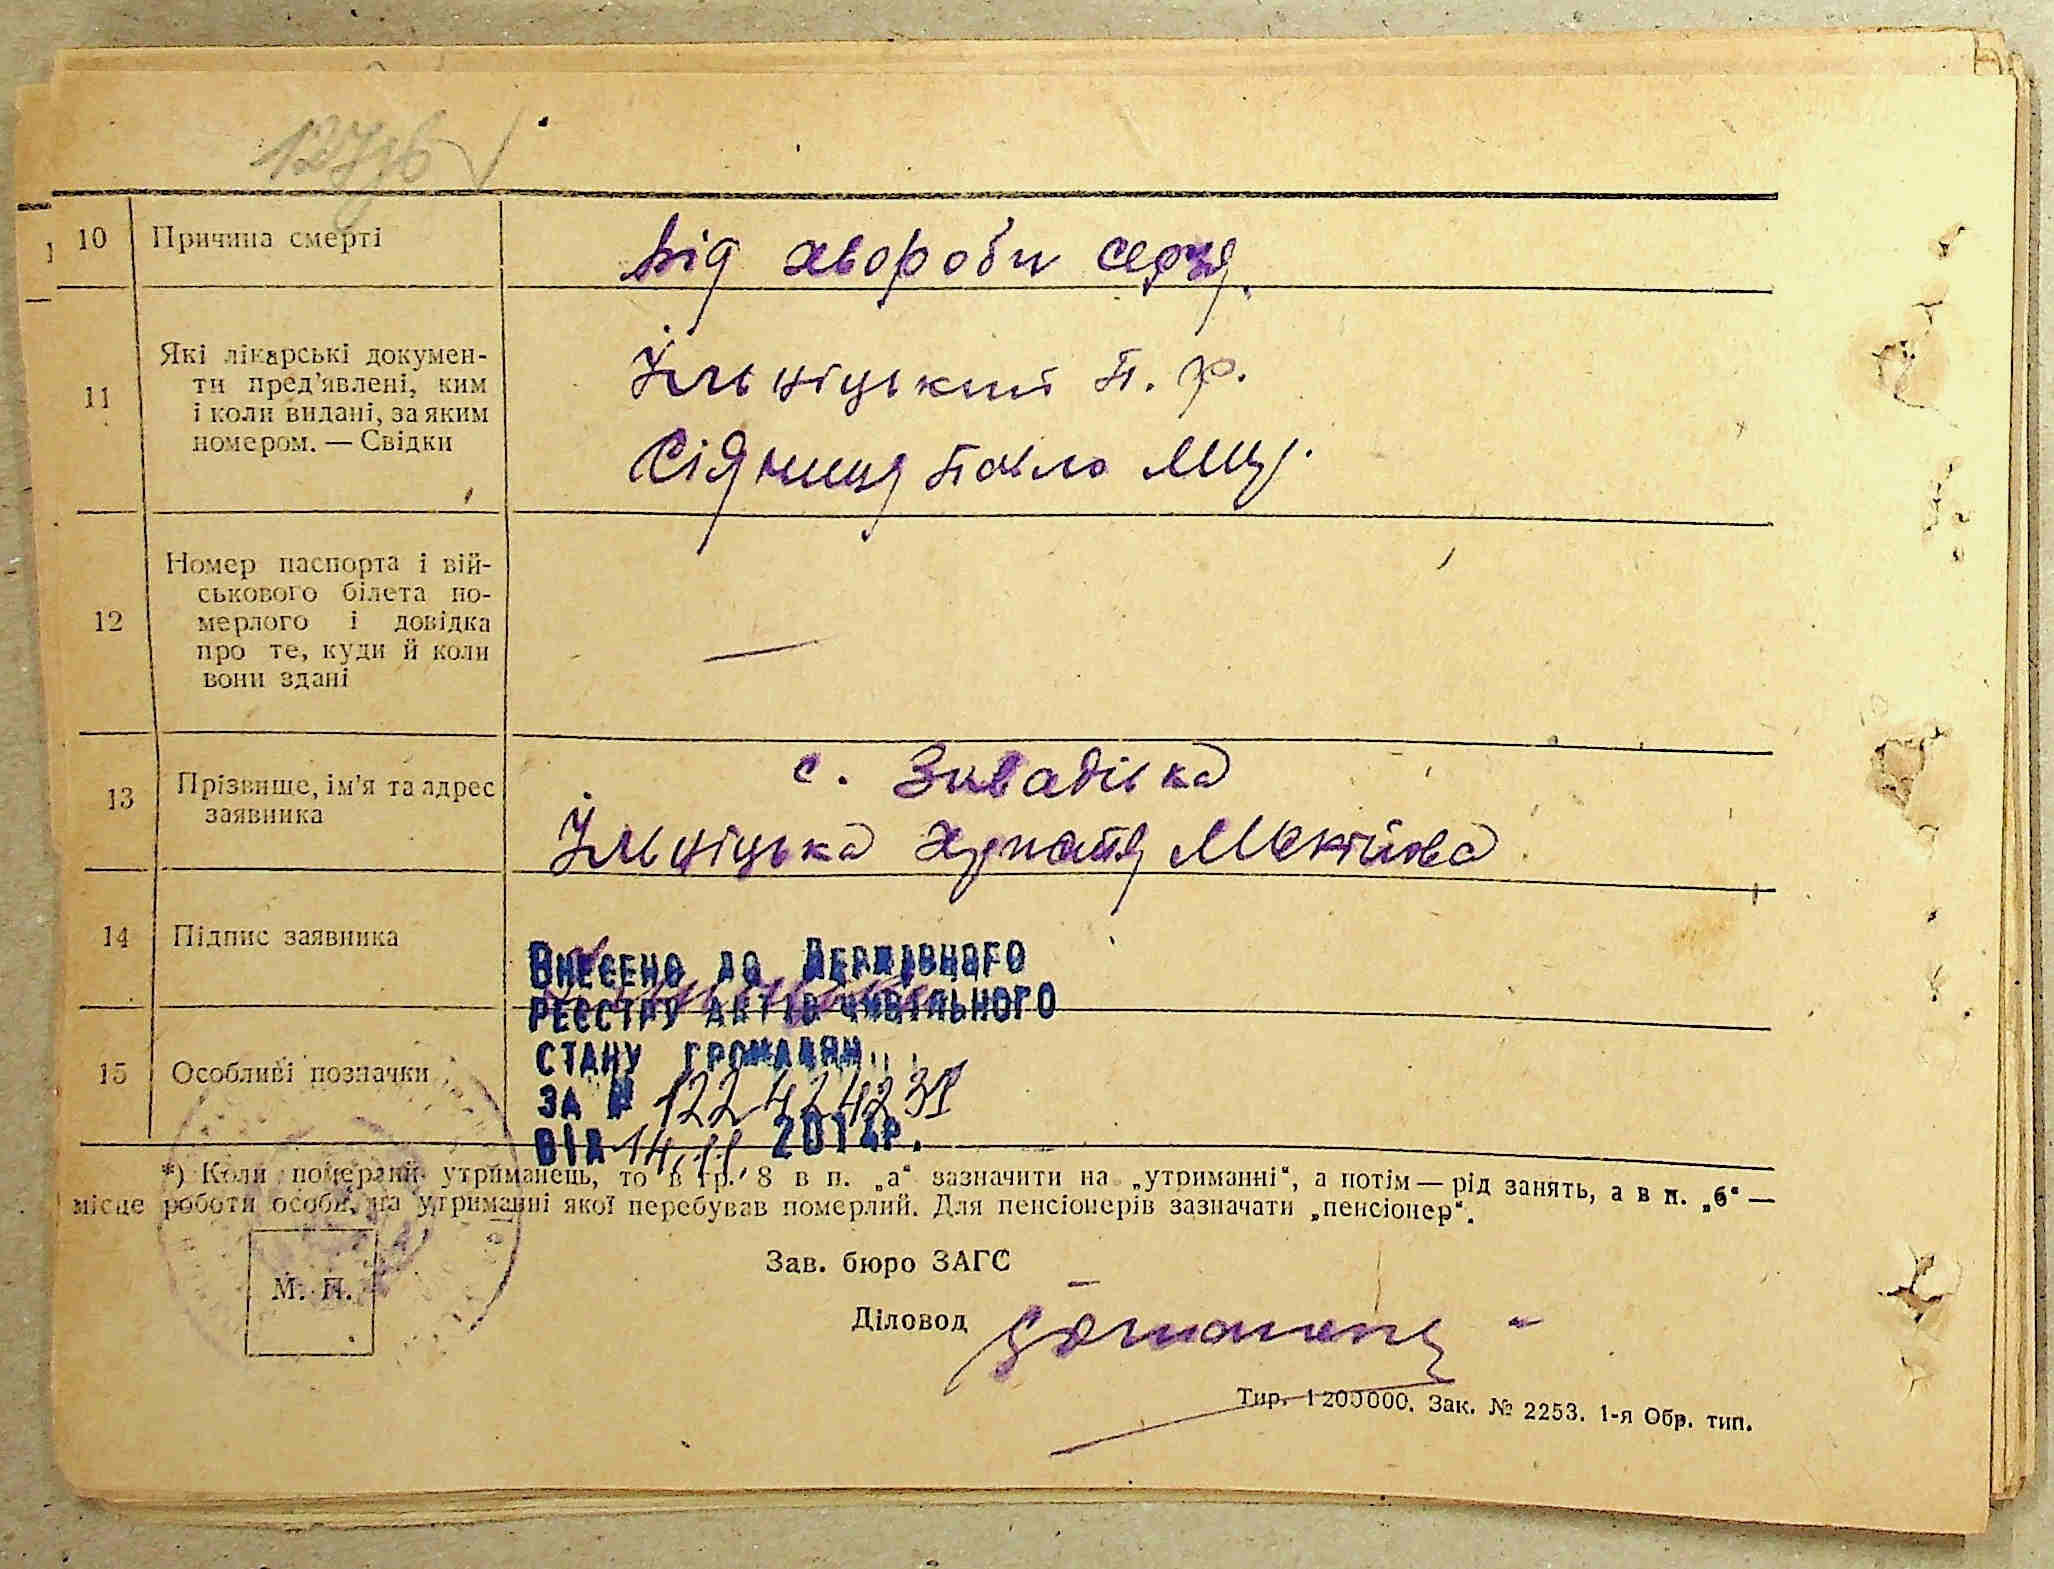 10 Причина смерті від хвороби серця
11 Які лікарські докумен-
ти пред'явлені, ким
і коли видані, за яким
номером. — Свідки
Ільніцький П. Ф.
Павло
12 Номер паспорта і вій-
ськового білета по-
мерлого і довідка
про те, куди й коли
вони здані
—
13 Прізвище, ім'я та адрес
заявника
с. Завадівка
Ільніцька
14 Підпис заявника
Внесено до Державного
реєстру актів цивільного
15 Особливі позначки
стану громадян
за № 122424231
від 14.11 2014р.
*) Коли померлий утриманець, то в гр. 8 в п. „а“ зазначити на „утриманні“, а потім — рід занять, а в п. „б“ —
місце роботи особи, на утриманні якої перебував померлий. Для пенсіонерів зазначати „пенсіонер“.
Зав. бюро ЗАГС
М. П.
Діловод
Тир. 1200000. Зак. № 2253. 1-я Обр. тип.